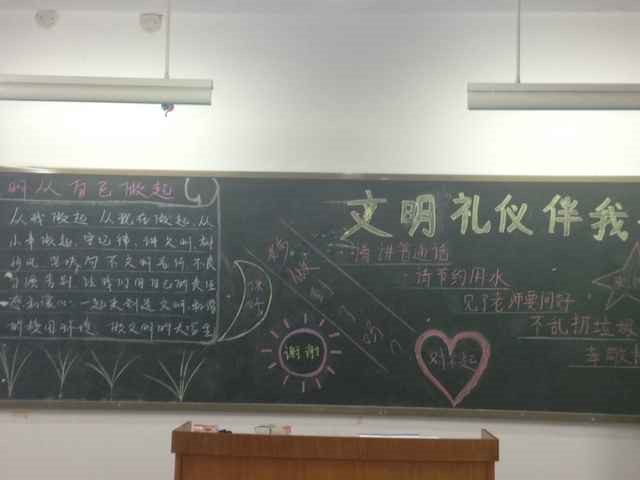 明从自己做起
从我做起 从现在做起.从
小事做起.守纪律,讲文明.
不文明言行 不良
告别 让我们用自己的
一起来创造文明.
的校园环境 做文明的大学生
文明礼仪伴我
请讲普通话
请节约用水
见了老师要问好
不乱扔垃圾
你好
你做到了吗?
谢谢!
对不起